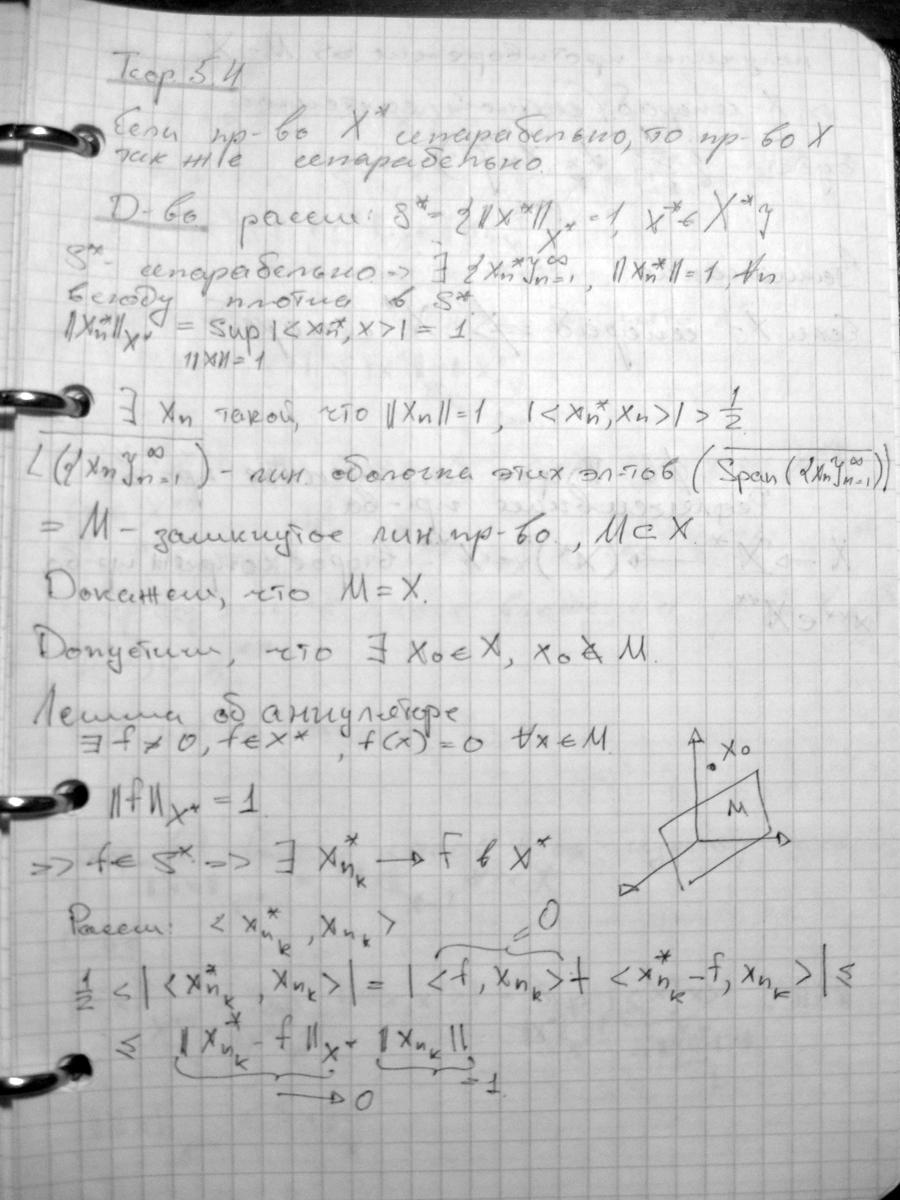 Теор. 5.4
Если пр-во X* сепарабельно, то пр-во X
так же сепарабельно.
Д-во рассм: S* = {||x*||_{X*} = 1, x* ∈ X*}
S* - сепарабельно => ∃ {x_n*}_{n=1}^∞, ||x_n*|| = 1, ∀n
всюду плотна в S*
||x_n*||_{X*} = sup_{||x||=1} |<x_n*, x>| = 1
∃ x_n такой, что ||x_n|| = 1, |<x_n*, x_n>| > 1/2
\overline{L({x_n}_{n=1}^∞)} - лин. оболочка этих эл-тов (\overline{Span({x_n}_{n=1}^∞)})
= M - замкнутое лин пр-во, M ⊂ X.
Докажем, что M = X.
Допустим, что ∃ x_0 ∈ X, x_0 ∉ M.
Лемма об аннуляторе
∃ f ≠ 0, f ∈ X*, f(x) = 0 ∀x ∈ M.
x_0
M
||f||_{X*} = 1.
=> f ∈ S* => ∃ x*_{n_k} → f в X*
Рассм: <x*_{n_k}, x_{n_k}>
= 0
1/2 < |<x*_{n_k}, x_{n_k}>| = |<f, x_{n_k}> + <x*_{n_k} - f, x_{n_k}>| ≤
≤ ||x*_{n_k} - f||_{X*} ||x_{n_k}||
→ 0 = 1.